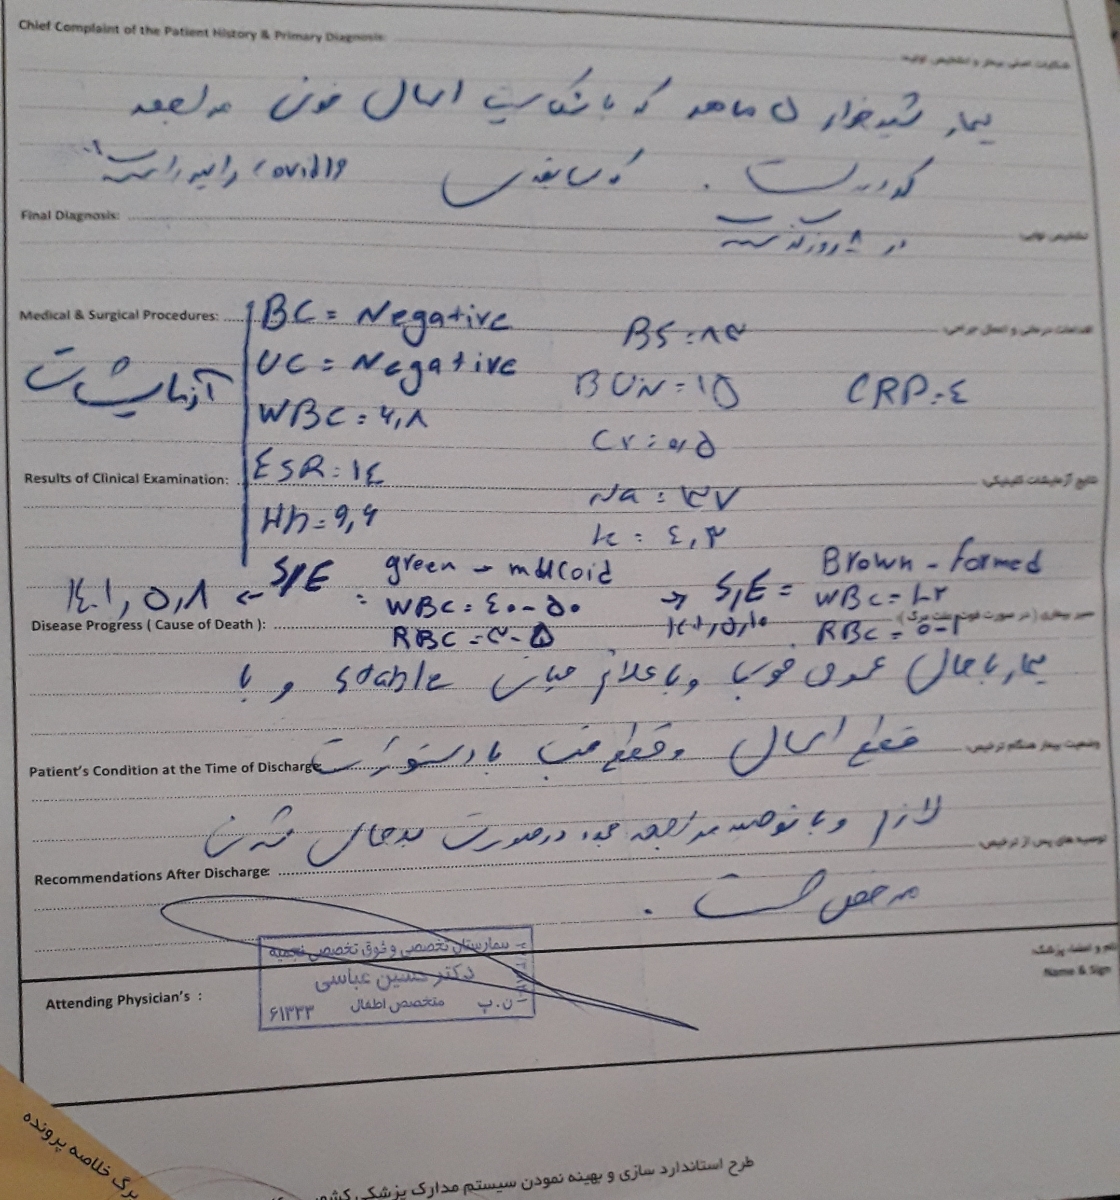 Chief Complaint of the Patient History & Primary Diagnosis:
شکایت اصلی بیمار و تشخیص اولیه:
بیمار شیرخوار ۵ ماهه که با شکایت اسهال خونی مراجعه
کرده است . که سابقه Covid19 را نیز داشته است
در ۸ روز گذشته
Final Diagnosis:
تشخیص نهایی:
Medical & Surgical Procedures:
اقدامات درمانی و اعمال جراحی:
آزمایشات
BC = Negative
BS : ۸۳
UC = Negative
BUN = ۱۵
CRP = ٤
WBC : ۶,۸
Cr : ۰,۵
Results of Clinical Examination:
نتایج آزمایشات کلینیکی:
ESR : ۱٤
Na : ۱۳۷
Hb = ۹,۶
K : ٤,۳
۱٤۰۱,۵,۸ ← S/E : green - mucoid
WBC = ٤۰-۵۰
RBC = ۳-۵
→ S/E = Brown - formed
WBC = ۱-۲
RBC = ۰-۱
Disease Progress ( Cause of Death ):
سیر بیماری ( در صورت فوت علت مرگ ):
بیمار با حال عمومی خوب و با علائم حیاتی stable و با
قطع اسهال و قطع تب با دستورات
Patient's Condition at the Time of Discharge
وضعیت بیمار هنگام ترخیص:
لازم و با توصیه مراجعه مجدد در صورت بدحال شدن
Recommendations After Discharge:
توصیه های پس از ترخیص:
مرخص است .
نام و امضاء پزشک:
Name & Sign
Attending Physician's :
بیمارستان تخصصی و فوق تخصصی نجمیه
دکتر حسین عباسی
متخصص اطفال
ن.پ ۶۱۳۳۳
برگ خلاصه پرونده
طرح استاندارد سازی و بهینه نمودن سیستم مدارک پزشکی